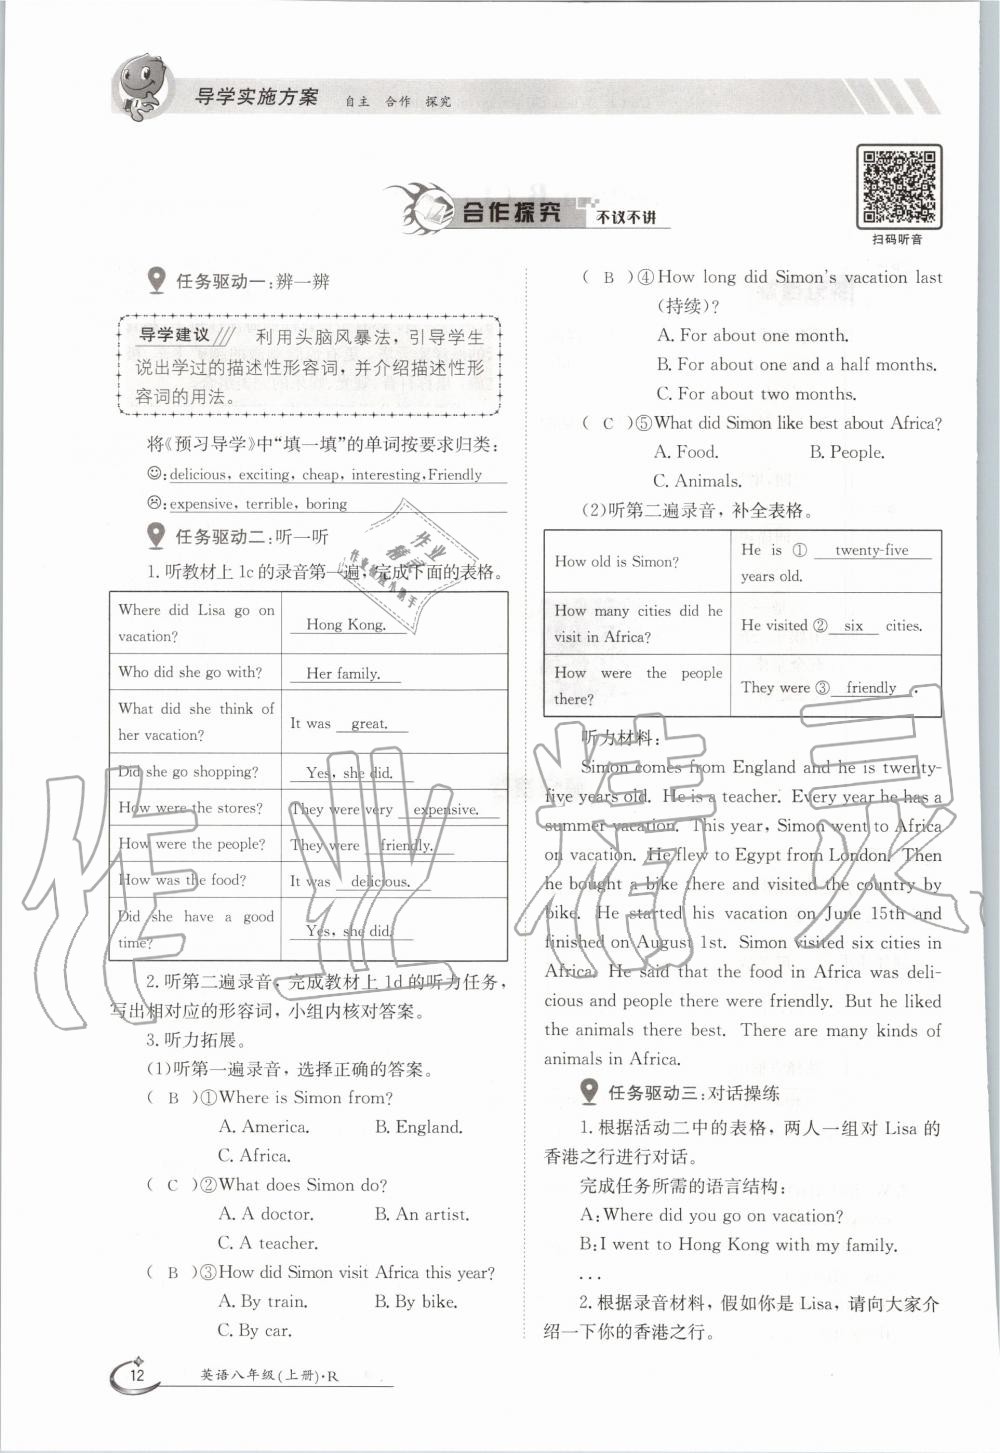 导学实施方案 自主 合作 探究
合作探究 不议不讲
扫码听音
任务驱动一:辨一辨
导学建议 利用头脑风暴法,引导学生
说出学过的描述性形容词,并介绍描述性形
容词的用法。
将《预习导学》中“填一填”的单词按要求归类:
☺:delicious, exciting, cheap, interesting,Friendly
☹:expensive, terrible, boring
任务驱动二:听一听
1.听教材上1c的录音第一遍,完成下面的表格。
Where did Lisa go on
vacation?
Hong Kong.
Who did she go with? Her family.
What did she think of
her vacation?
It was great.
Did she go shopping? Yes, she did.
How were the stores? They were very expensive.
How were the people? They were friendly.
How was the food? It was delicious.
Did she have a good
time?
Yes, she did.
2.听第二遍录音,完成教材上1d的听力任务,
写出相对应的形容词,小组内核对答案。
3.听力拓展。
(1)听第一遍录音,选择正确的答案。
( B )①Where is Simon from?
A. America. B. England.
C. Africa.
( C )②What does Simon do?
A. A doctor. B. An artist.
C. A teacher.
( B )③How did Simon visit Africa this year?
A. By train. B. By bike.
C. By car.
( B )④How long did Simon's vacation last
(持续)?
A. For about one month.
B. For about one and a half months.
C. For about two months.
( C )⑤What did Simon like best about Africa?
A. Food. B. People.
C. Animals.
(2)听第二遍录音,补全表格。
How old is Simon? He is ① twenty-five
years old.
How many cities did he
visit in Africa?
He visited ② six cities.
How were the people
there?
They were ③ friendly .
听力材料:
Simon comes from England and he is twenty-
five years old. He is a teacher. Every year he has a
summer vacation. This year, Simon went to Africa
on vacation. He flew to Egypt from London. Then
he bought a bike there and visited the country by
bike. He started his vacation on June 15th and
finished on August 1st. Simon visited six cities in
Africa. He said that the food in Africa was deli-
cious and people there were friendly. But he liked
the animals there best. There are many kinds of
animals in Africa.
任务驱动三:对话操练
1.根据活动二中的表格,两人一组对 Lisa 的
香港之行进行对话。
完成任务所需的语言结构:
A:Where did you go on vacation?
B:I went to Hong Kong with my family.
...
2.根据录音材料,假如你是 Lisa,请向大家介
绍一下你的香港之行。
12 英语八年级(上册)·R
作业精灵